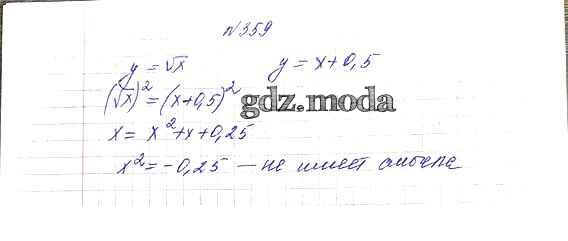 N359
y = √x y = x+0,5
(√x)² = (x+0,5)²
gdz.moda
x = x²+x+0,25
x² = -0,25 — не имеет смысла